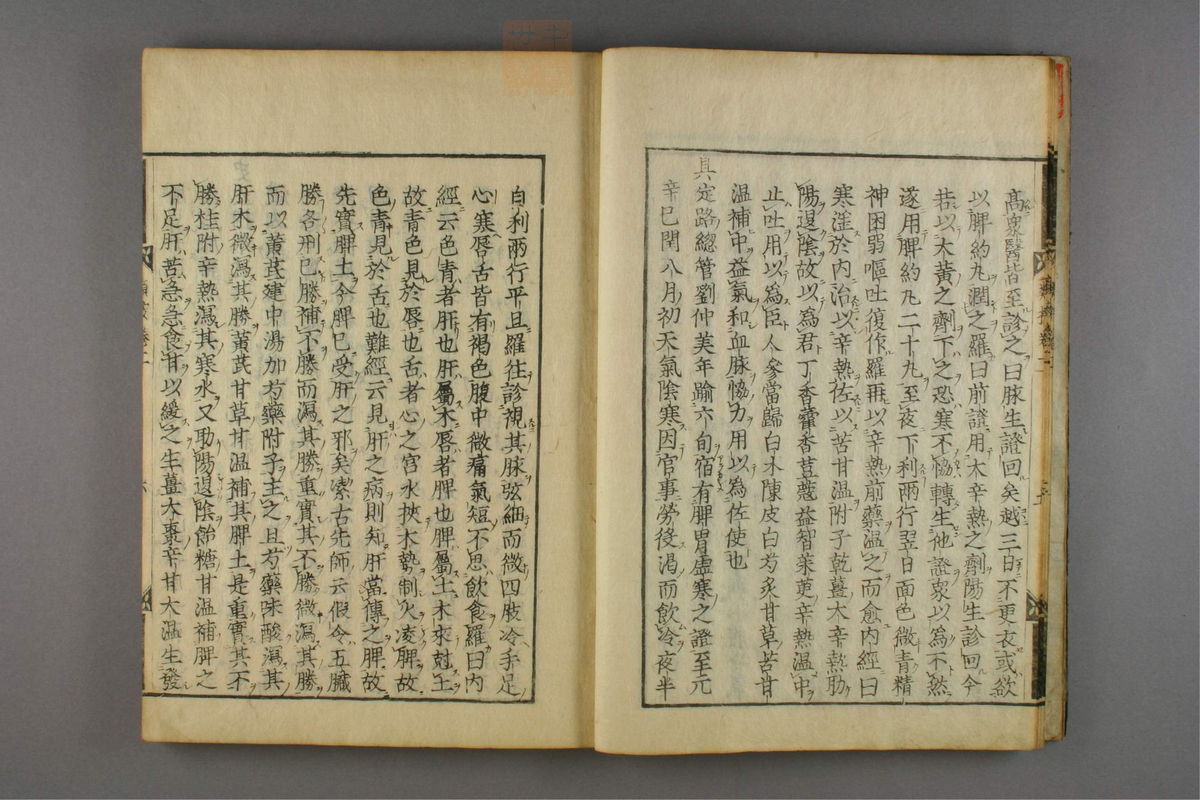 髙衆醫皆至診之曰脉生證回矣越三日不更衣或欲
以脾約丸潤之羅曰前證用大辛熱之劑陽生診回今
若以大黄之劑下之恐寒不恊轉生他證衆以為不然
遂用脾約丸二十九至夜下利兩行翌日面色微青精
神困弱嘔吐復作羅再以辛熱前藥温之而愈内經曰
寒淫於内治以辛熱佐以苦甘温附子乾薑大辛熱助
陽退陰故以為君丁香藿香荳蔻益智茱萸辛熱温中
止吐用以為臣人參當歸白朮陳皮白芍炙甘草苦甘
温補中益氣和血脉恊力用以為佐使也
真定路緫管劉仲美年踰六旬宿有脾胃虚寒之證至元
辛巳閏八月初天氣陰寒因官事勞役渇而飲冷夜半
自利兩行平旦羅徃診視其脉弦細而微四肢冷手足
心寒唇舌皆有褐色腹中微痛氣短不思飲食羅曰内
經云色青者肝也肝屬木唇者脾也脾屬土木來尅土
故青色見於唇也舌者心之官水挾木勢制火凌脾故
色青見於舌也難經云見肝之病則知肝當傳之脾故
先實脾土今脾已受肝之邪矣潔古先師云假令五臓
勝各刑已勝補不勝而瀉其勝重實其不勝微瀉其勝
而以黄芪建中湯加芍藥附子主之且芍藥味酸瀉其
肝木微瀉其勝黄芪甘草甘温補其脾土是重實其不
勝桂附辛熱瀉其寒水又助陽退陰飴糖甘温補脾之
不足肝苦急急食甘以緩之生薑大棗辛甘大温生發